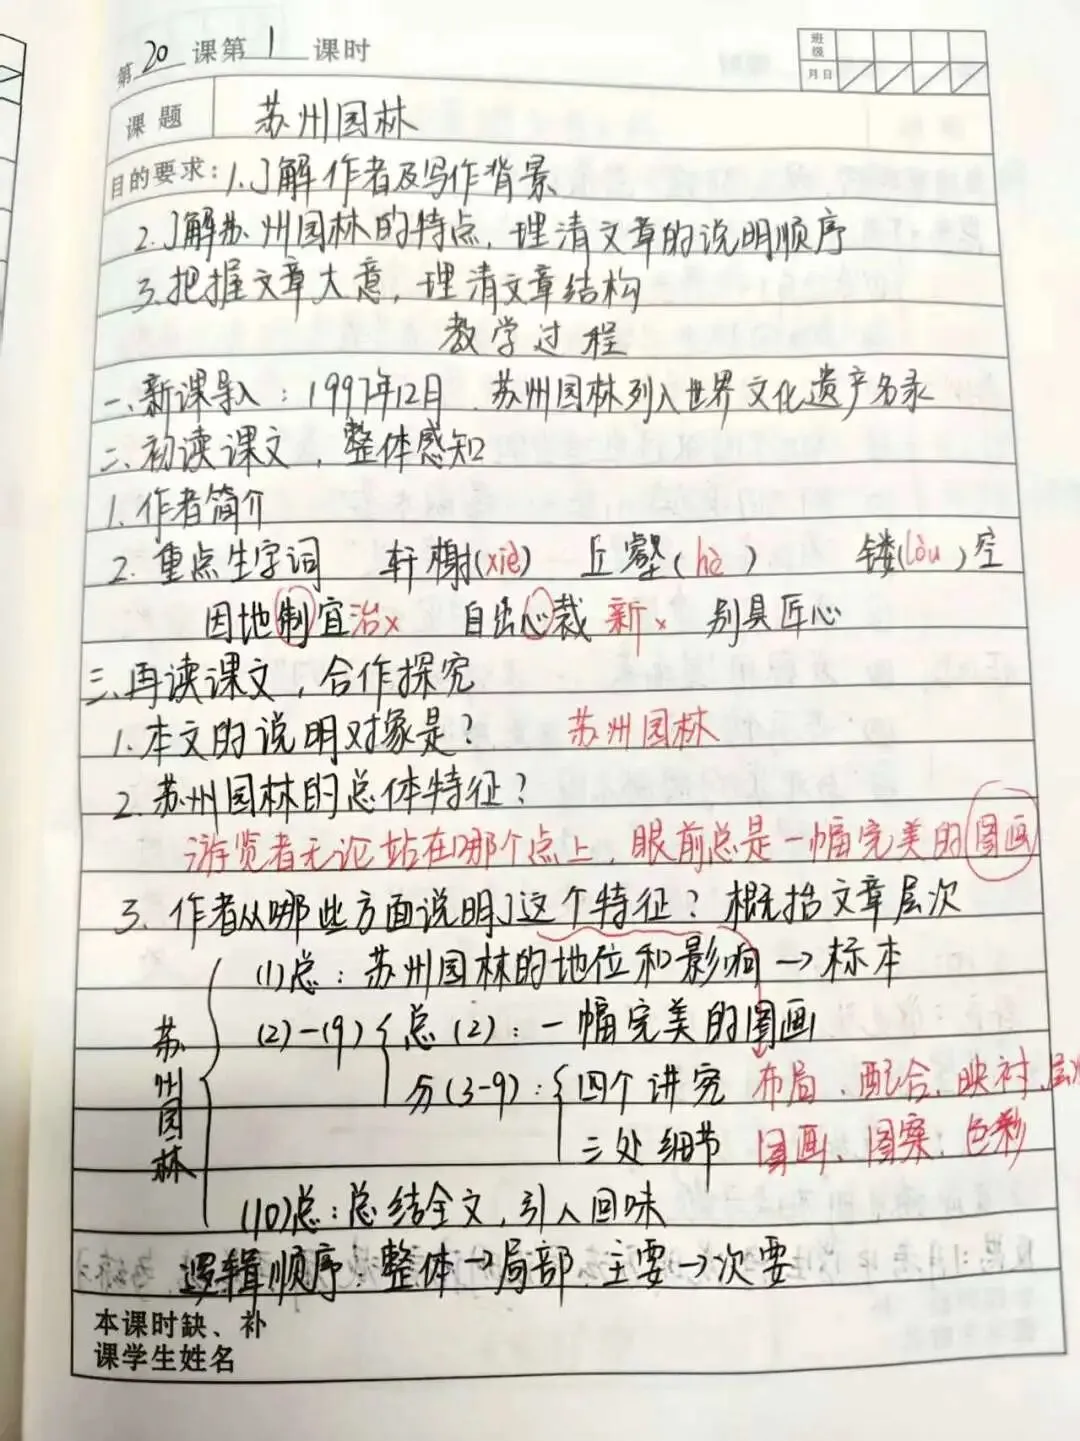 第20课第1课时
班级
月日
课题 苏州园林
目的要求：1.了解作者及写作背景
2.了解苏州园林的特点，理清文章的说明顺序
3.把握文章大意，理清文章结构
教学过程
一、新课导入：1997年12月、苏州园林列入世界文化遗产名录
二、初读课文，整体感知
1.作者简介
2.重点生字词 轩榭(xiè) 丘壑(hè) 镂(lòu)空
因地制宜治× 自出心裁 新× 别具匠心
三、再读课文，合作探究
1.本文的说明对象是？ 苏州园林
2.苏州园林的总体特征？
游览者无论站在哪个点上，眼前总是一幅完美的图画
3.作者从哪些方面说明了这个特征？概括文章层次
(1)总：苏州园林的地位和影响→标本
(2)-(9) 总(2)：一幅完美的图画
苏州园林
分(3-9)：四个讲究 布局、配合、映衬、层次
三处细节 图画、图案、色彩
(10)总：总结全文，引人回味
逻辑顺序：整体→局部 主要→次要
本课时缺、补
课学生姓名